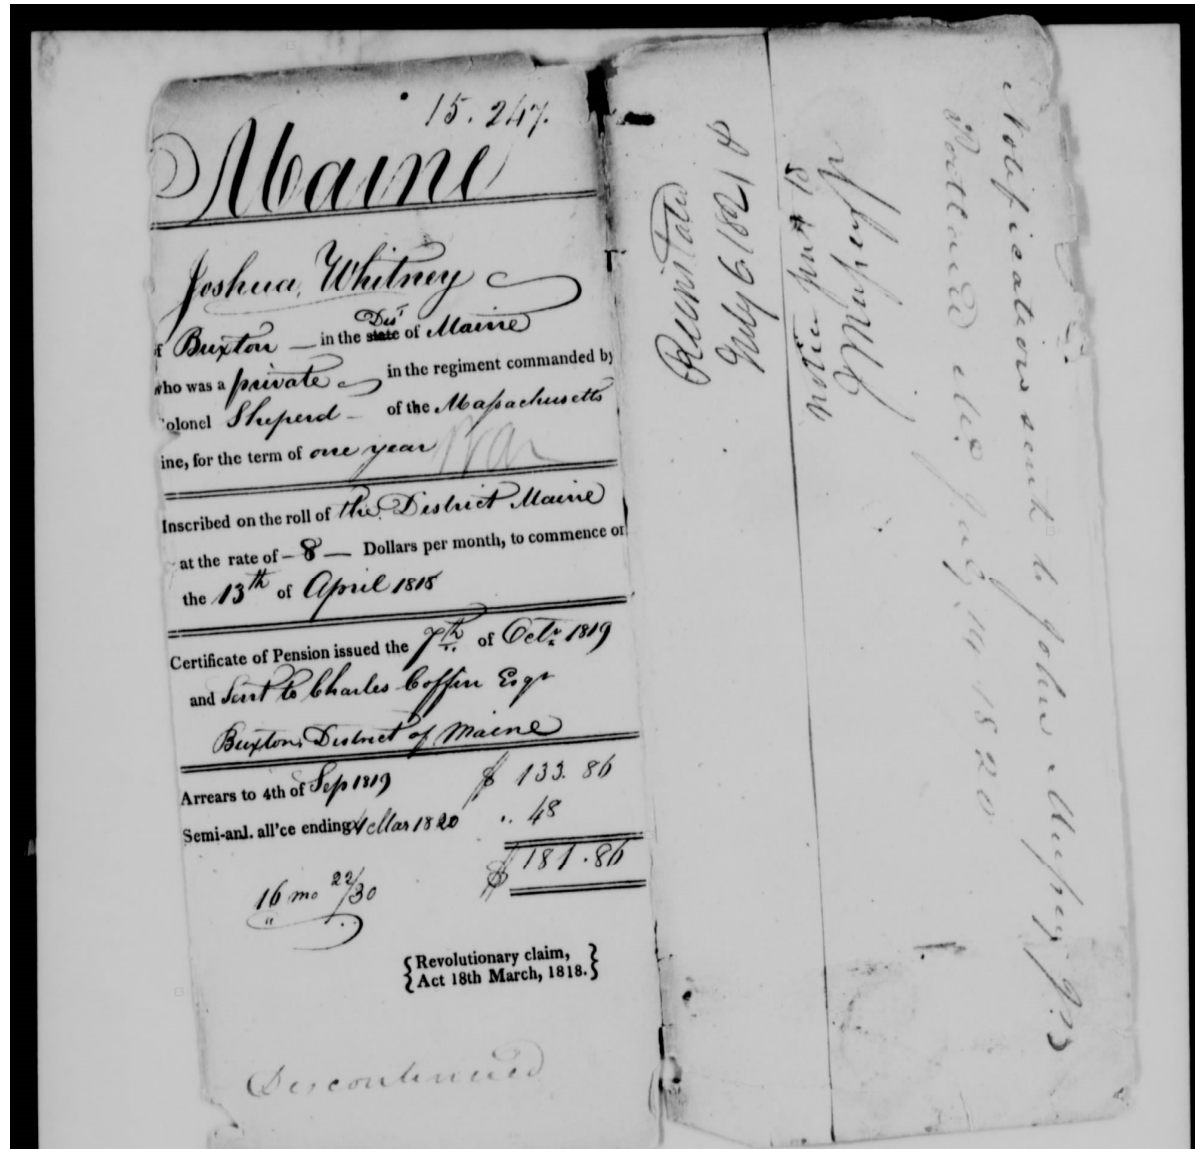 15.247.
Maine
Joshua Whitney
of Buxton — in the state Dis^t of Maine
who was a private in the regiment commanded by
Colonel Sheperd — of the Massachusetts
ine, for the term of one year
Inscribed on the roll of the District Maine
at the rate of — 8 — Dollars per month, to commence on
the 13th of April 1818
Certificate of Pension issued the 7th of Octr 1819
and Sent to Charles Coffin Esqr
Buxton, District of Maine
Arrears to 4th of Sep 1819 $ 133.86
Semi-anl. all'ce ending 4 Mar 1820 .. 48
$ 181.86
16 mo 22/30
{Revolutionary claim,
Act 18th March, 1818.}
Discontinued
Reinstated
July 6 1821 &
notice sent to
Notification sent to John
Portland
1820